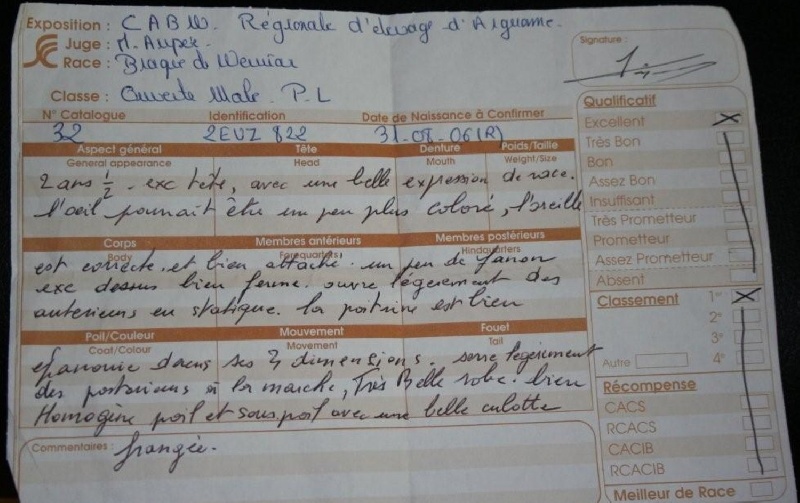 Exposition : C A B W. Régionale d'élevage d'Aiguame.
Juge : M. Auper.
Race : Braque de Weimar
Classe : Ouverte Male. P.L
Signature :
N° Catalogue Identification Date de Naissance à Confirmer
32 2EUZ 822 31-08-06 (R)
Aspect général Tête Denture Poids/Taille
General appearance Head Mouth Weight/Size
2 ans 1/2 . exc tête, avec une belle expression de race.
l'oeil pourrait être un peu plus coloré, l'oreille
Corps Membres antérieurs Membres postérieurs
Body Forequarters Hindquarters
est correcte et bien attaché. un peu de fanon
exc dessus bien ferme. ouvre légèrement des
anterieurs en statique. la poitrine est bien
Poil/Couleur Mouvement Fouet
Coat/Colour Movement Tail
epanouie dans ses 3 dimensions. serre légèrement
des posterieurs à la marche, Très Belle robe. bien
Homogène poil et sous poil avec une belle culotte
Commentaires : frangée.
Qualificatif
Excellent X
Très Bon
Bon
Assez Bon
Insuffisant
Très Prometteur
Prometteur
Assez Prometteur
Absent
Classement 1er X
2e
3e
Autre 4e
Récompense
CACS
RCACS
CACIB
RCACIB
Meilleur de Race